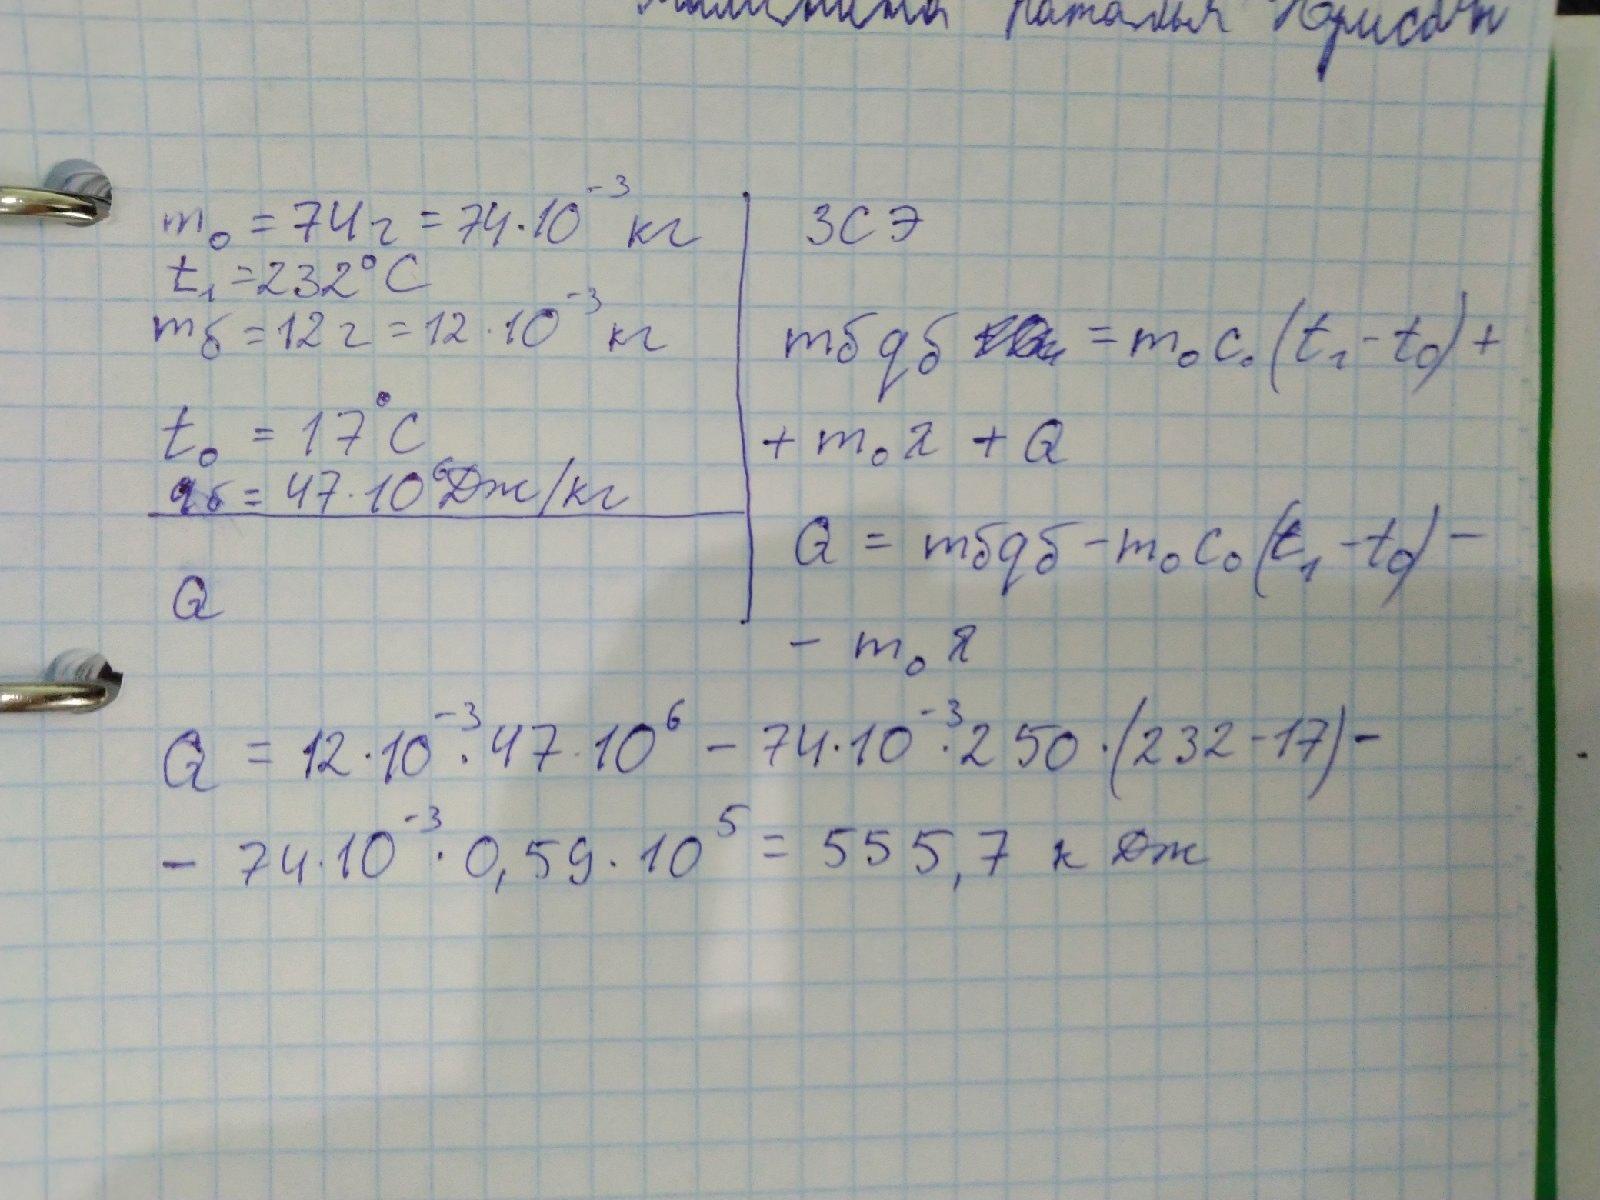 Наталья
m₀ = 74 г = 74·10⁻³ кг
t₁ = 232°C
mб = 12 г = 12·10⁻³ кг
t₀ = 17°C
qб = 47·10⁶ Дж/кг
Q
ЗСЭ
mб qб = m₀ c₀ (t₁ - t₀) +
+ m₀ λ + Q
Q = mб qб - m₀ c₀ (t₁ - t₀) -
- m₀ λ
Q = 12·10⁻³·47·10⁶ - 74·10⁻³·250·(232-17) -
- 74·10⁻³·0,59·10⁵ = 555,7 кДж